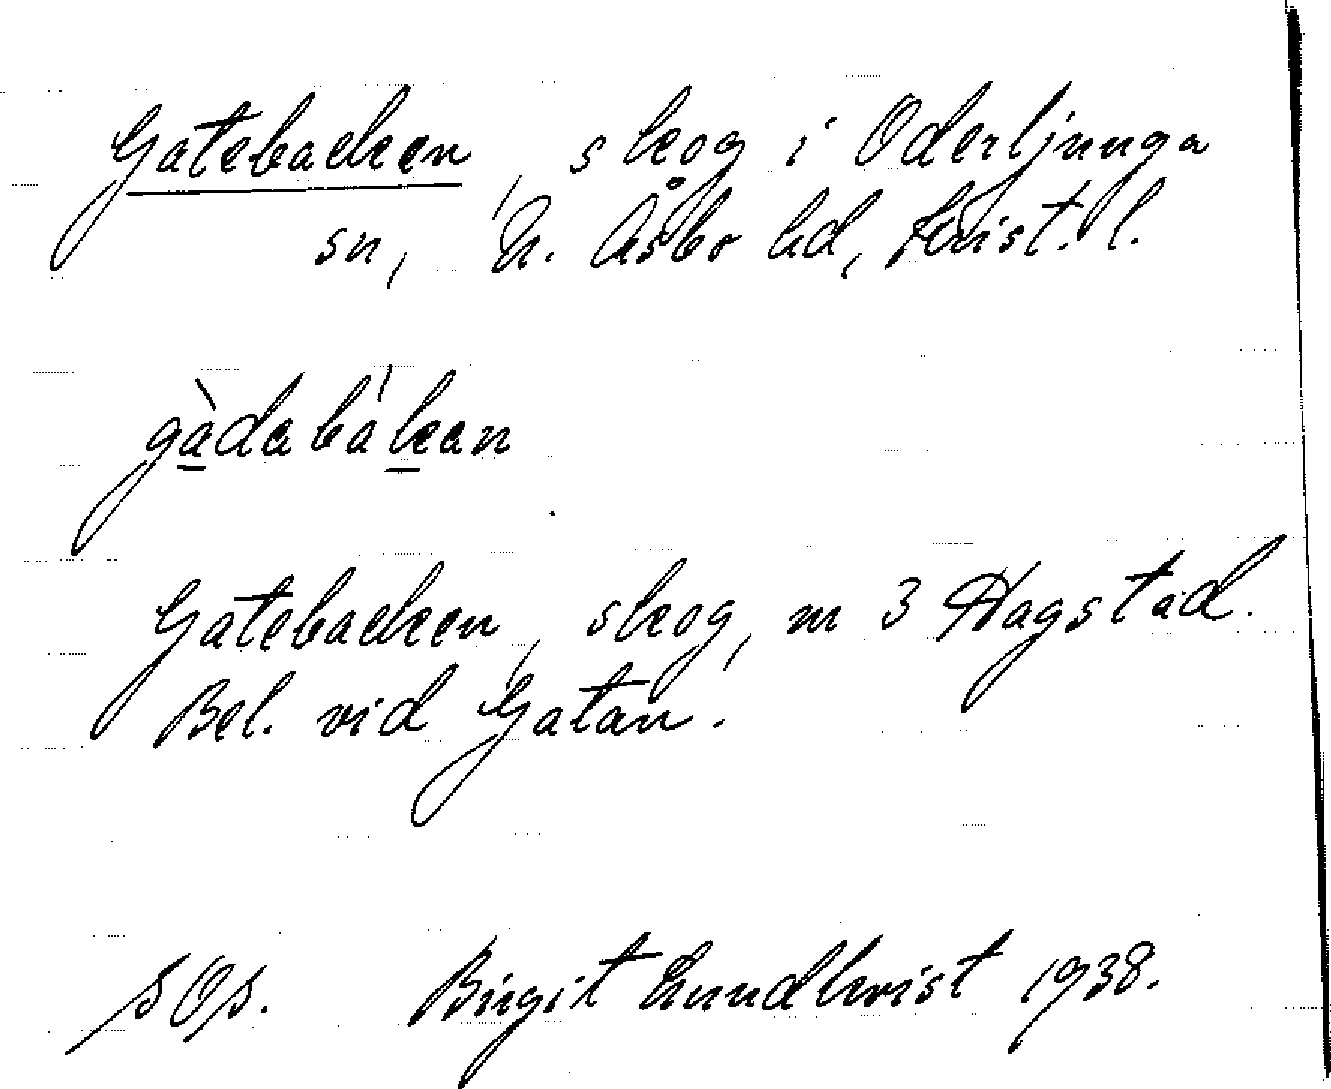 Gatebacken, skog i Oderljunga
sn, N. Åsbo hd, Krist. l.
gàdabàkan
Gatebacken, skog, m 3 Hagstad.
Bel. vid Gatan.
SOS. Birgit Lundkvist 1938.